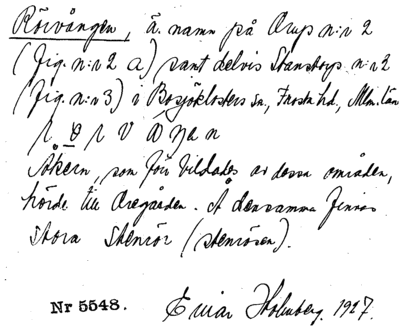 Rörvången, ä. namn på Arup n:r 2
(fig. n:r 2 a) samt delvis Stanstorp n:r 2
(fig. n:r 3) i Bosjöklosters sn, Frosta hd, Mlm. län
Åkern, som förr bildades av dessa områden,
hörde till Aregården. Å densamma finnas
stora stenrör (stenrösen).
Nr 5548. Einar Holmberg. 1927.